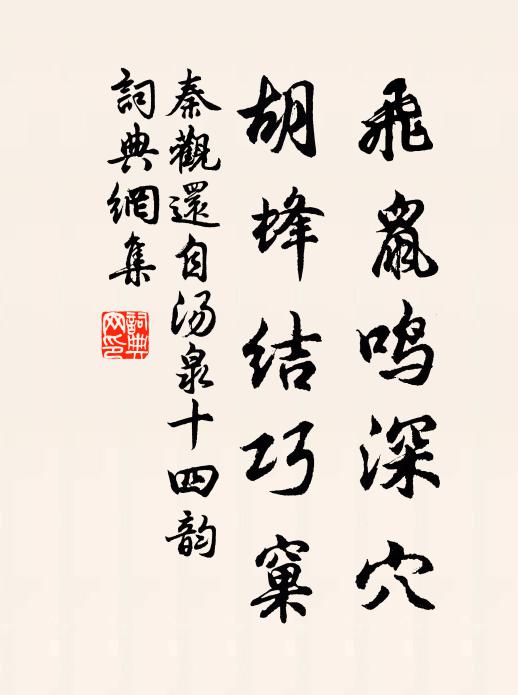 飛鼠鸣深穴
胡蜂结巧窠
秦觀還自汤泉十四韵
詞典網集
詞典
网印